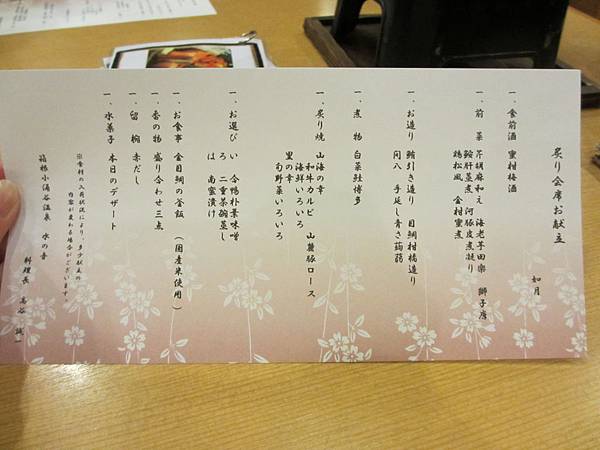 炙り会席お献立
如月
一、食前酒 蜜柑梅酒
一、前菜 芹胡麻和え 海老芋田楽 獅子唐
鮟肝葱煮 河豚皮煮凝り
鶏松風 金柑蜜煮
一、お造り 鮪引き造り 目鯛柑橘造り
間八 手延し青さ蒟蒻
一、煮物 白菜 博多
一、炙り焼 山海の幸
和牛カルビ 山麓豚ロース
海鮮いろいろ
里の幸
旬野菜いろいろ
一、お選び い 合鴨朴葉味噌
ろ 二重茶碗蒸し
は 南蛮漬け
一、お食事 金目鯛の釜飯 (国産米使用)
一、香の物 盛り合わせ三点
一、留椀 赤だし
一、水菓子 本日のデザート
※食材の入荷状況により、多少献立の
内容が変わる場合がございます。
箱根小涌谷温泉 水の音
料理長 高谷 誠一